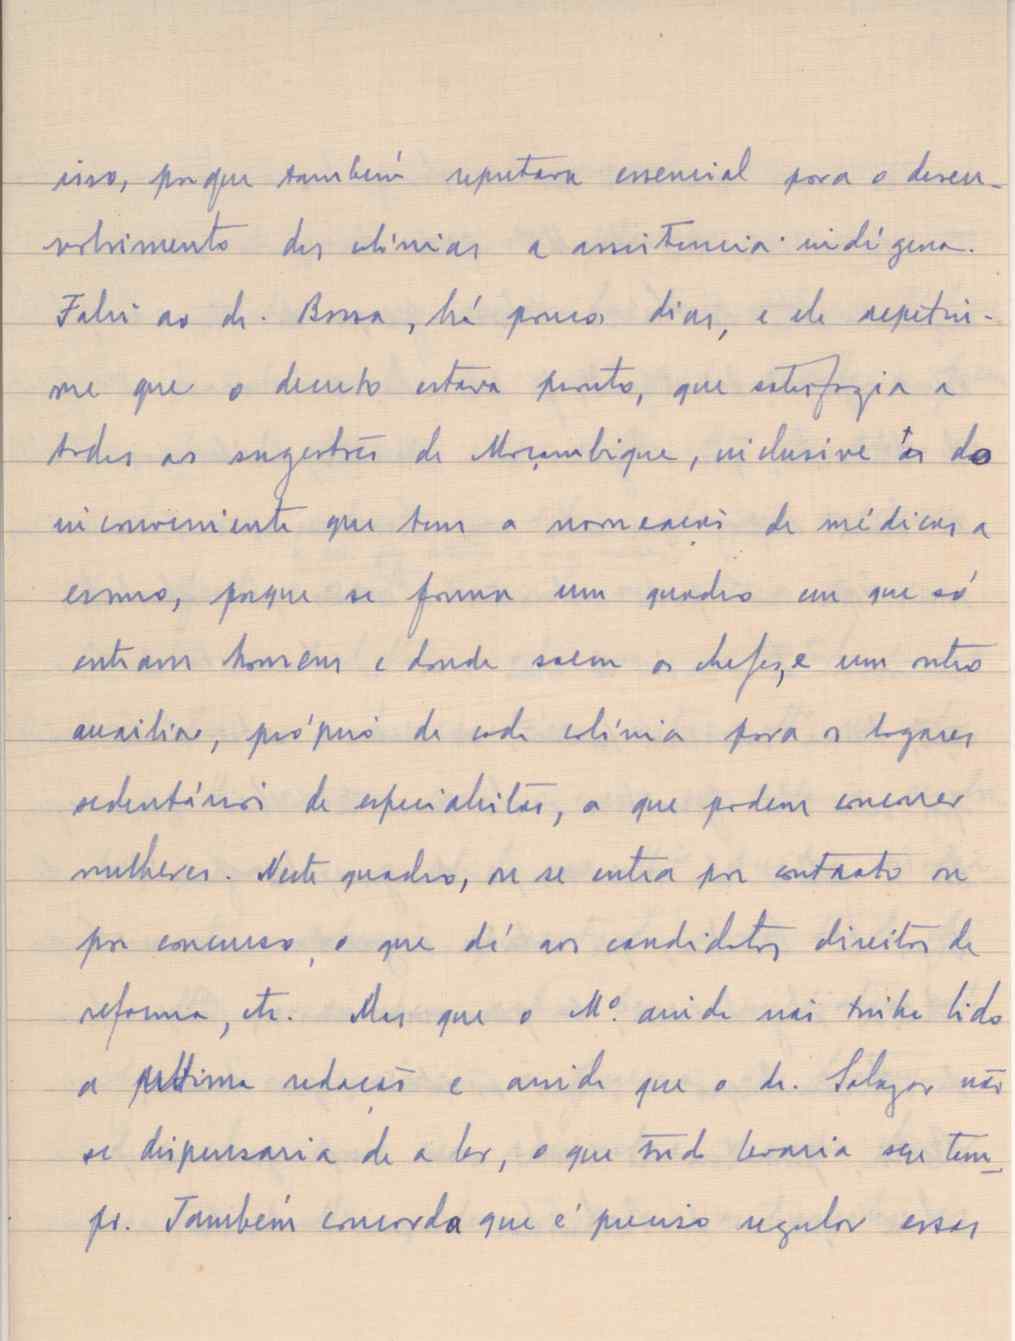 isso, porque também reputava essencial para o desen-
volvimento das colónias a assistencia indígena.
Falei ao dr. Bossa, há poucos dias, e ele repetiu-
me que o decreto estava pronto, que satisfazia a
todas as sugestões de Moçambique, inclusive às do
inconveniente que tem a nomeação de médicos a
esmo, porque se forma um quadro em que só
entram homens e donde saem os chefes, e um outro
auxiliar, próprio de cada colónia para os logares
sedentários de especialistas, a que podem concorrer
mulheres. Neste quadro, ou se entra por contrato ou
por concurso, o que dá aos candidatos direitos de
reforma, etc. Mas que o Mº. ainda não tinha lido
a ultima redação e ainda que o dr. Salazar não
se dispensaria de a ler, o que tudo levaria seu tem-
po. Também concorda que é preciso regular essas